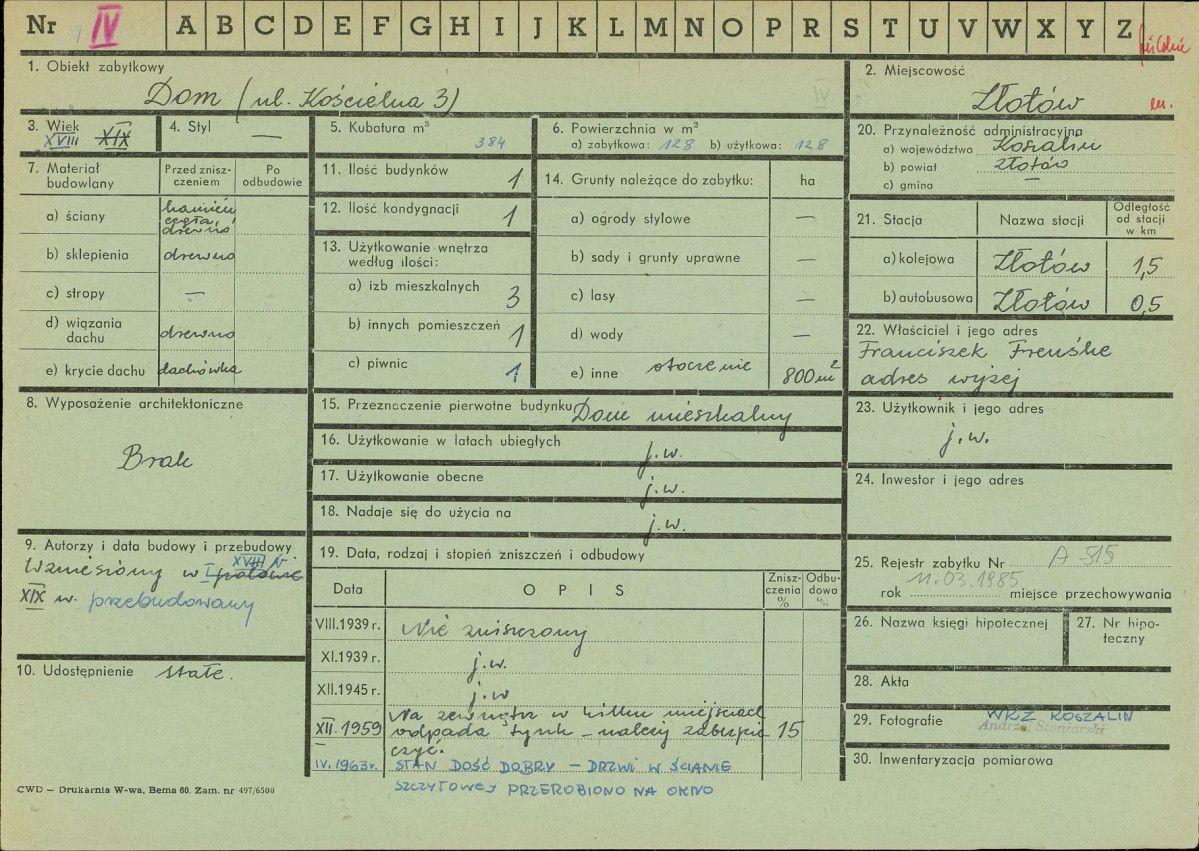 Nr IV A B C D E F G H I J K L M N O P R S T U V W X Y Z
1. Obiekt zabytkowy
Dom (ul. Kościelna 3)
IV
2. Miejscowość
Złotów
m.
3. Wiek
XVIII XIX
4. Styl —
5. Kubatura m³
384
6. Powierzchnia w m³
a) zabytkowa: 128 b) użytkowa: 128
20. Przynależność administracyjna
a) województwo Koszalin
b) powiat złotów
c) gmina —
7. Materiał budowlany
Przed znisz-
czeniem
Po
odbudowie
a) ściany
kamień
cegła,
drewno
b) sklepienia drewno
c) stropy —
d) wiązania
dachu
drewno
e) krycie dachu dachówka
11. Ilość budynków 1
12. Ilość kondygnacji 1
13. Użytkowanie wnętrza
według ilości:
a) izb mieszkalnych 3
b) innych pomieszczeń 1
c) piwnic 1
14. Grunty należące do zabytku: ha
a) ogrody stylowe —
b) sady i grunty uprawne —
c) lasy —
d) wody —
e) inne otoczenie 800 m²
21. Stacja
Nazwa stacji
Odległość
od stacji
w km
a) kolejowa Złotów 1,5
b) autobusowa Złotów 0,5
22. Właściciel i jego adres
Franciszek Frenske
adres wyżej
8. Wyposażenie architektoniczne
Brak
15. Przeznaczenie pierwotne budynku Dom mieszkalny
16. Użytkowanie w latach ubiegłych
j.w.
17. Użytkowanie obecne
j.w.
18. Nadaje się do użycia na
j.w.
23. Użytkownik i jego adres
j.w.
24. Inwestor i jego adres
9. Autorzy i data budowy i przebudowy
Wzniesiony w I połowie XVIII w
XIX w. przebudowany
10. Udostępnienie stałe.
19. Data, rodzaj i stopień zniszczeń i odbudowy
Data
OPIS
Znisz-
czenia
%
Odbu-
dowa
%
VIII.1939 r. Nie zniszczony
XI.1939 r. j.w.
XII.1945 r. j.w
XII. 1959 Na zewnątrz w kilku miejscach
odpada tynk – należy zabezpie 15
czyć.
IV. 1963 r. STAN DOŚĆ DOBRY – DRZWI W ŚCIANIE
SZCZYTOWEJ PRZEROBIONO NA OKNO
25. Rejestr zabytku Nr A-515
11.03.1985
rok miejsce przechowywania
26. Nazwa księgi hipotecznej
27. Nr hipo-
teczny
28. Akta
29. Fotografie WKZ KOSZALIN
Andrzej Stasiarski
30. Inwentaryzacja pomiarowa
CWD — Drukarnia W-wa, Bema 60. Zam. nr 497/6500